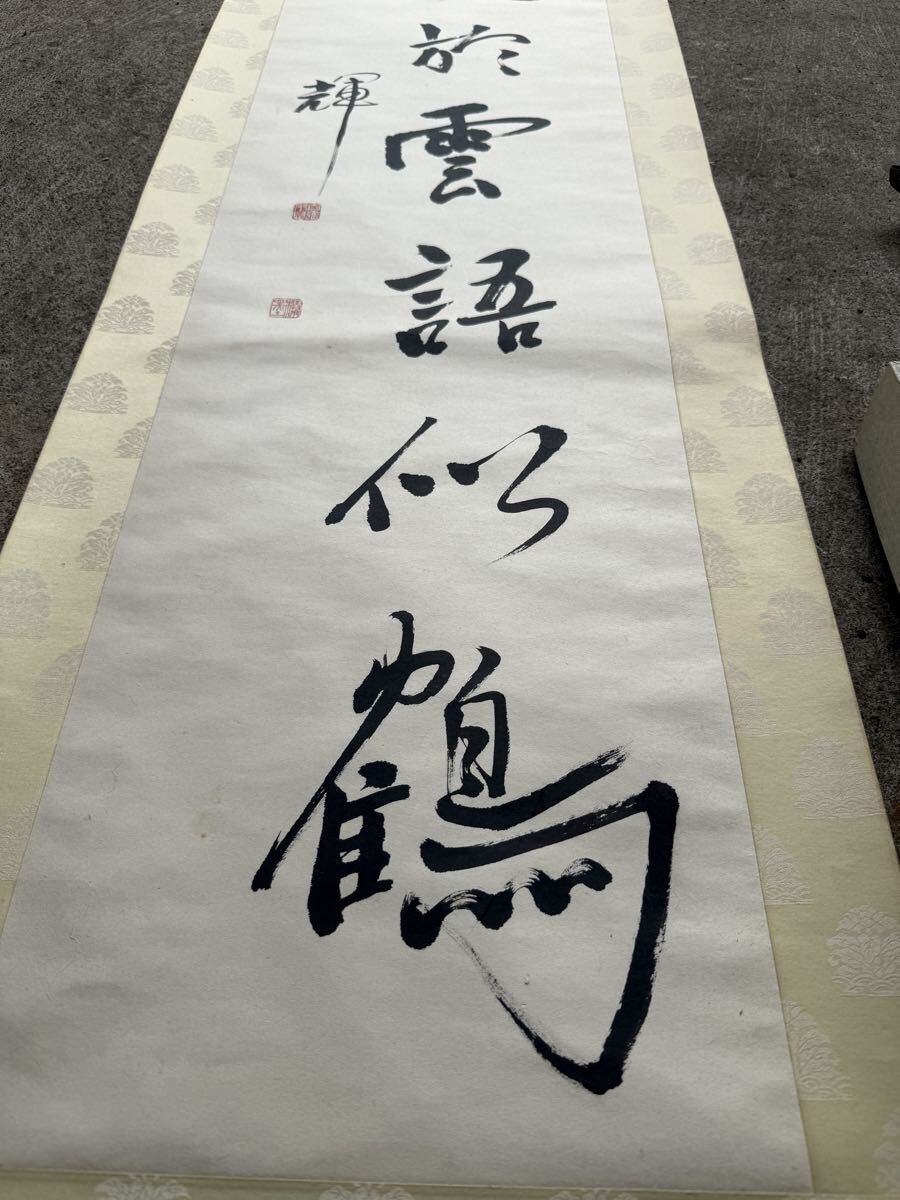 於雲語似鶴
輝